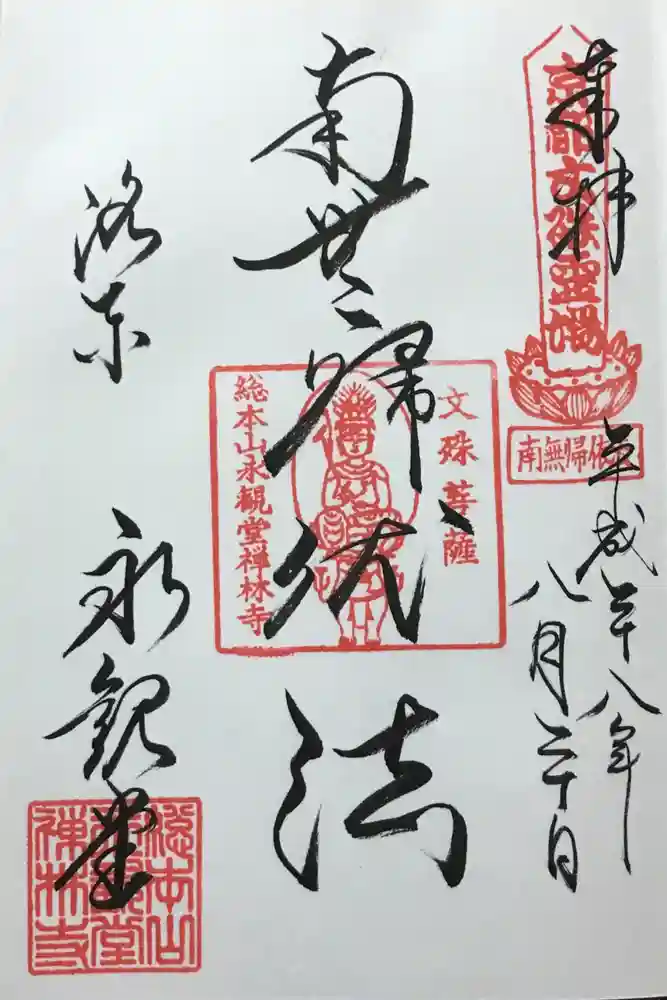 奉拝
京都文殊霊場
南無帰依
平成二十八年
八月二十日
南無帰依法
文殊菩薩
総本山永観堂禅林寺
洛東 永観堂
總本山
永觀堂
禪林寺